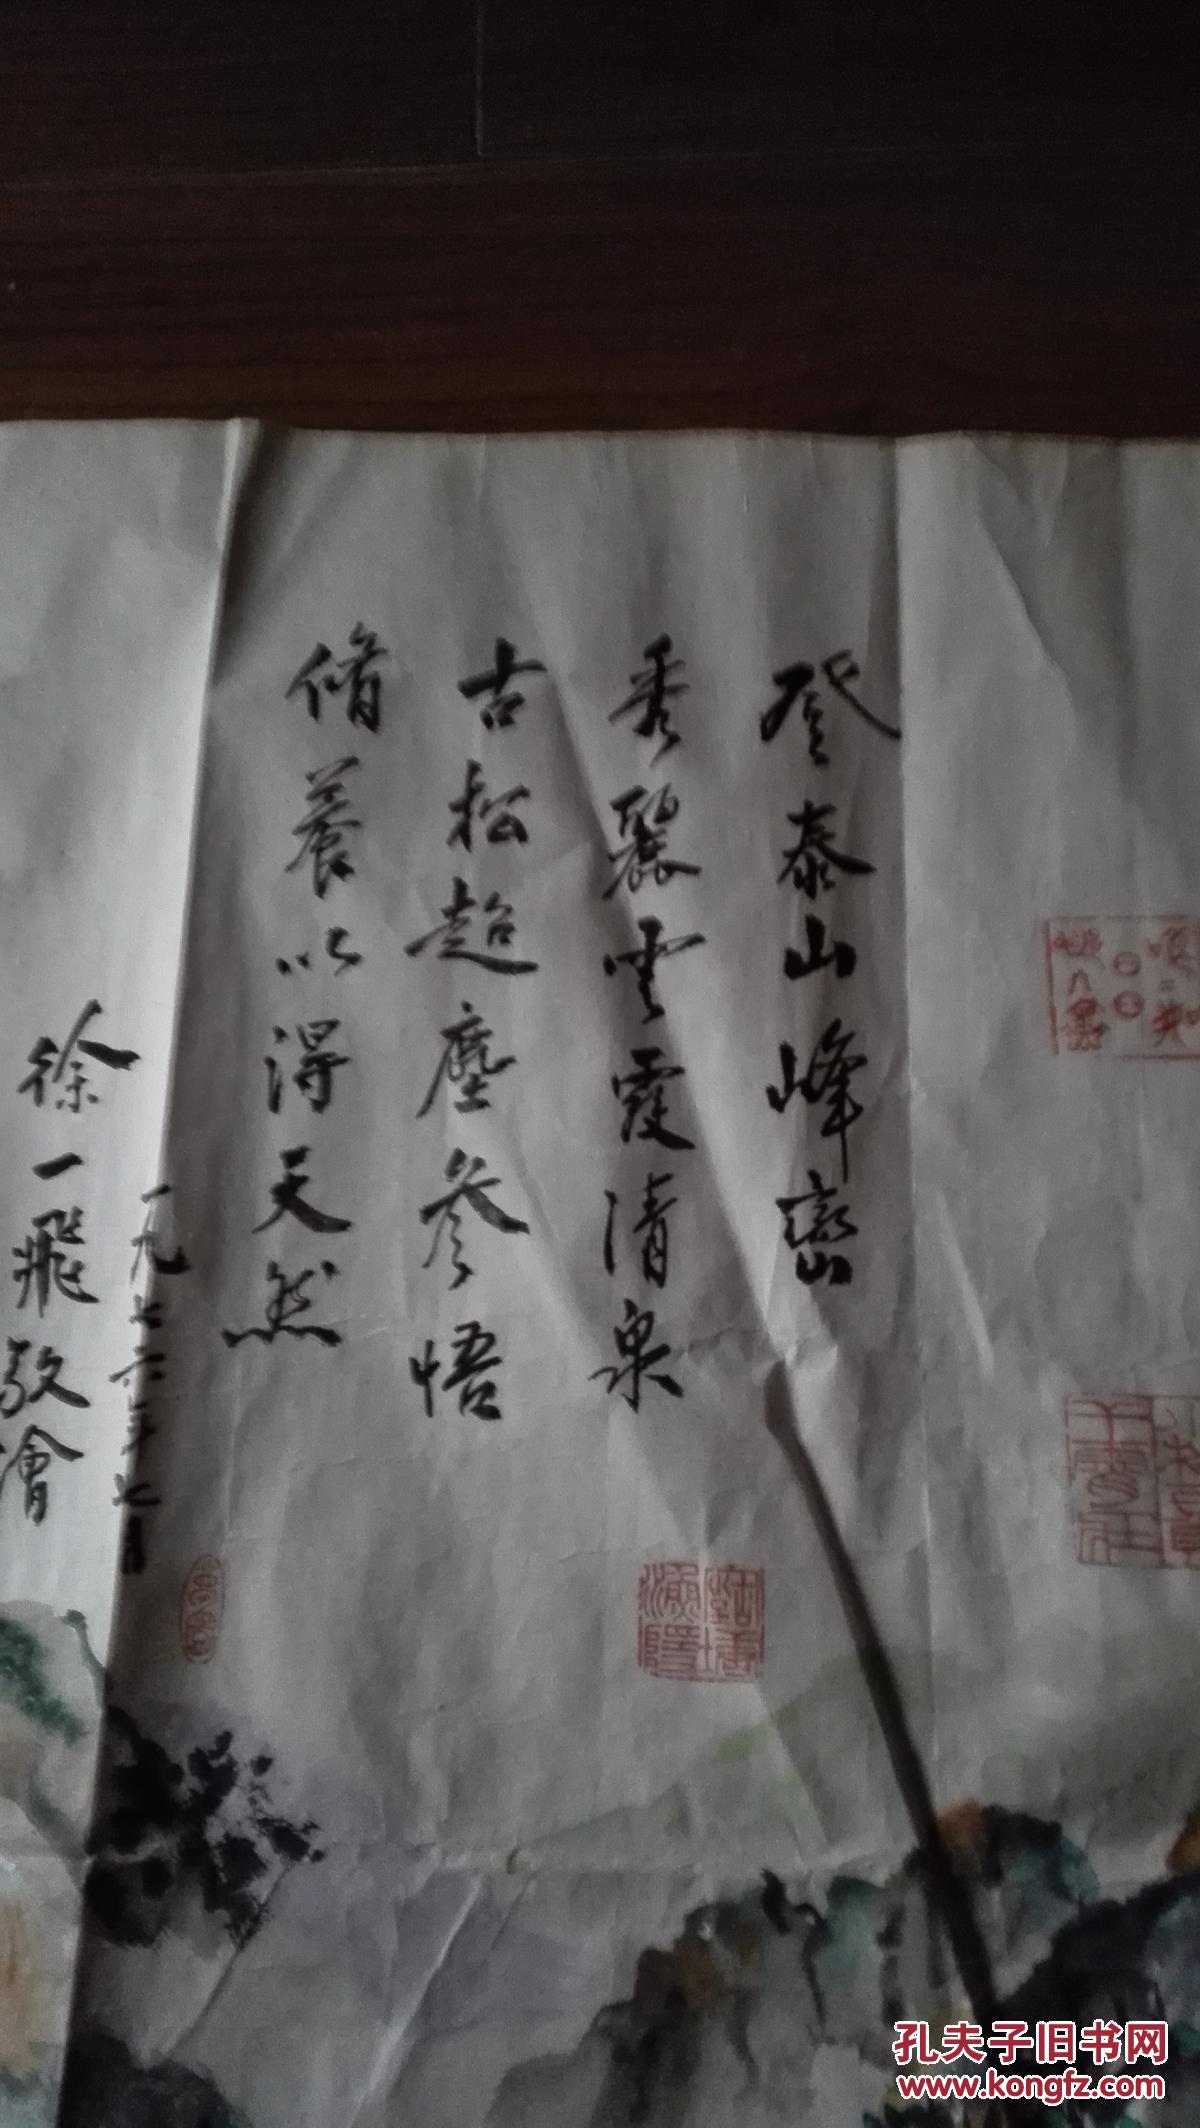 登泰山峰巒
秀麗雲霞清泉
古松超塵參悟
脩養以得天然
一九七六年七月
徐一飛敬繪
孔夫子旧书网
www.kongfz.com